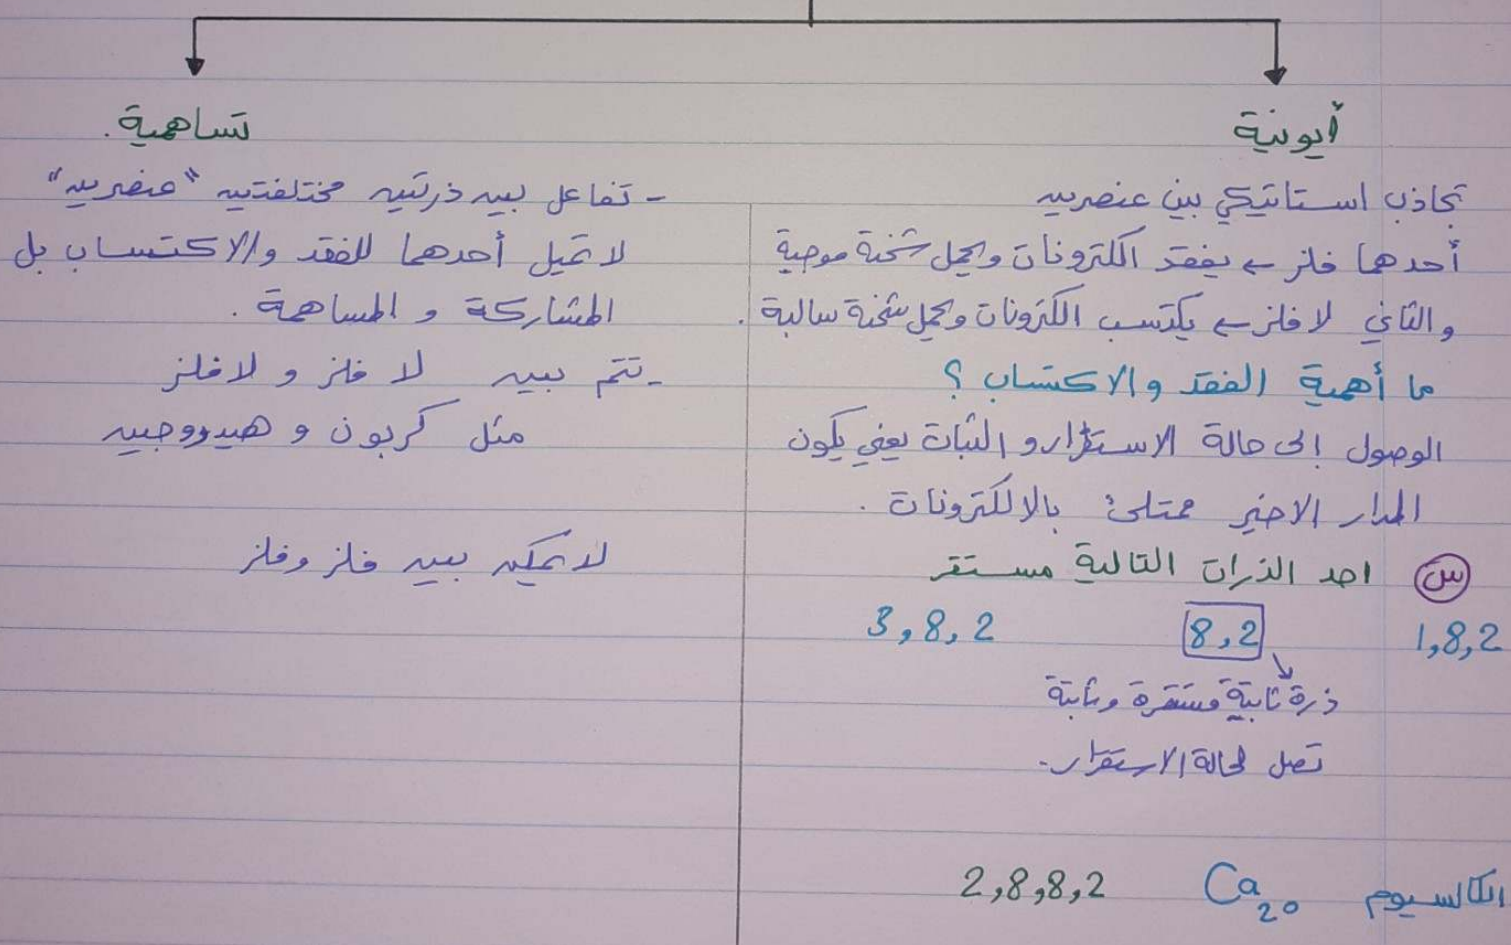 أيونية
تجاذب استاتيكي بين عنصرين
أحدهما فلز ← يفقد الكترونات ويحمل شحنة موجبة
والثاني لا فلز ← يكتسب الكترونات ويحمل شحنة سالبة.
ما أهمية الفقد والاكتساب ؟
الوصول إلى حالة الاستقرار و الثبات يعني يكون
المدار الاخير ممتلئ بالالكترونات .
س احد الذرات التالية مستقر
1,8,2 8,2 3,8,2
ذرة ثابتة مستقرة وثابتة
تصل لحالة الاستقرار.
الكالسيوم Ca20 2,8,8,2
تساهمية.
- تفاعل بين ذرتين مختلفتين "عنصرين"
لا تميل أحدهما للفقد والاكتساب بل
المشاركة و المساهمة .
- تتم بين لا فلز و لافلز
مثل كربون و هيدروجين
لا يمكن بين فلز وفلز